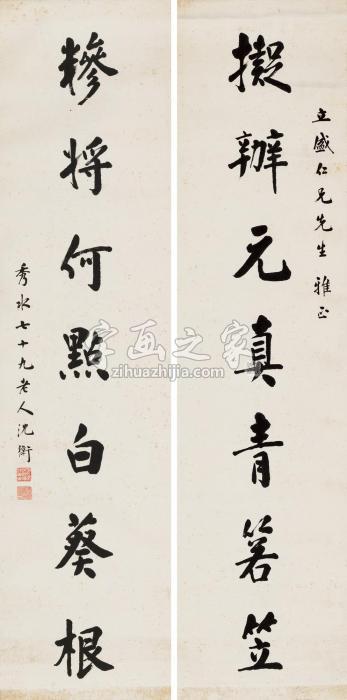 立盛仁兄先生 雅正
擬辦元真青箬笠
糝將何點白葵根
秀水七十九老人沈衛
字画之家
zihuazhijia.com